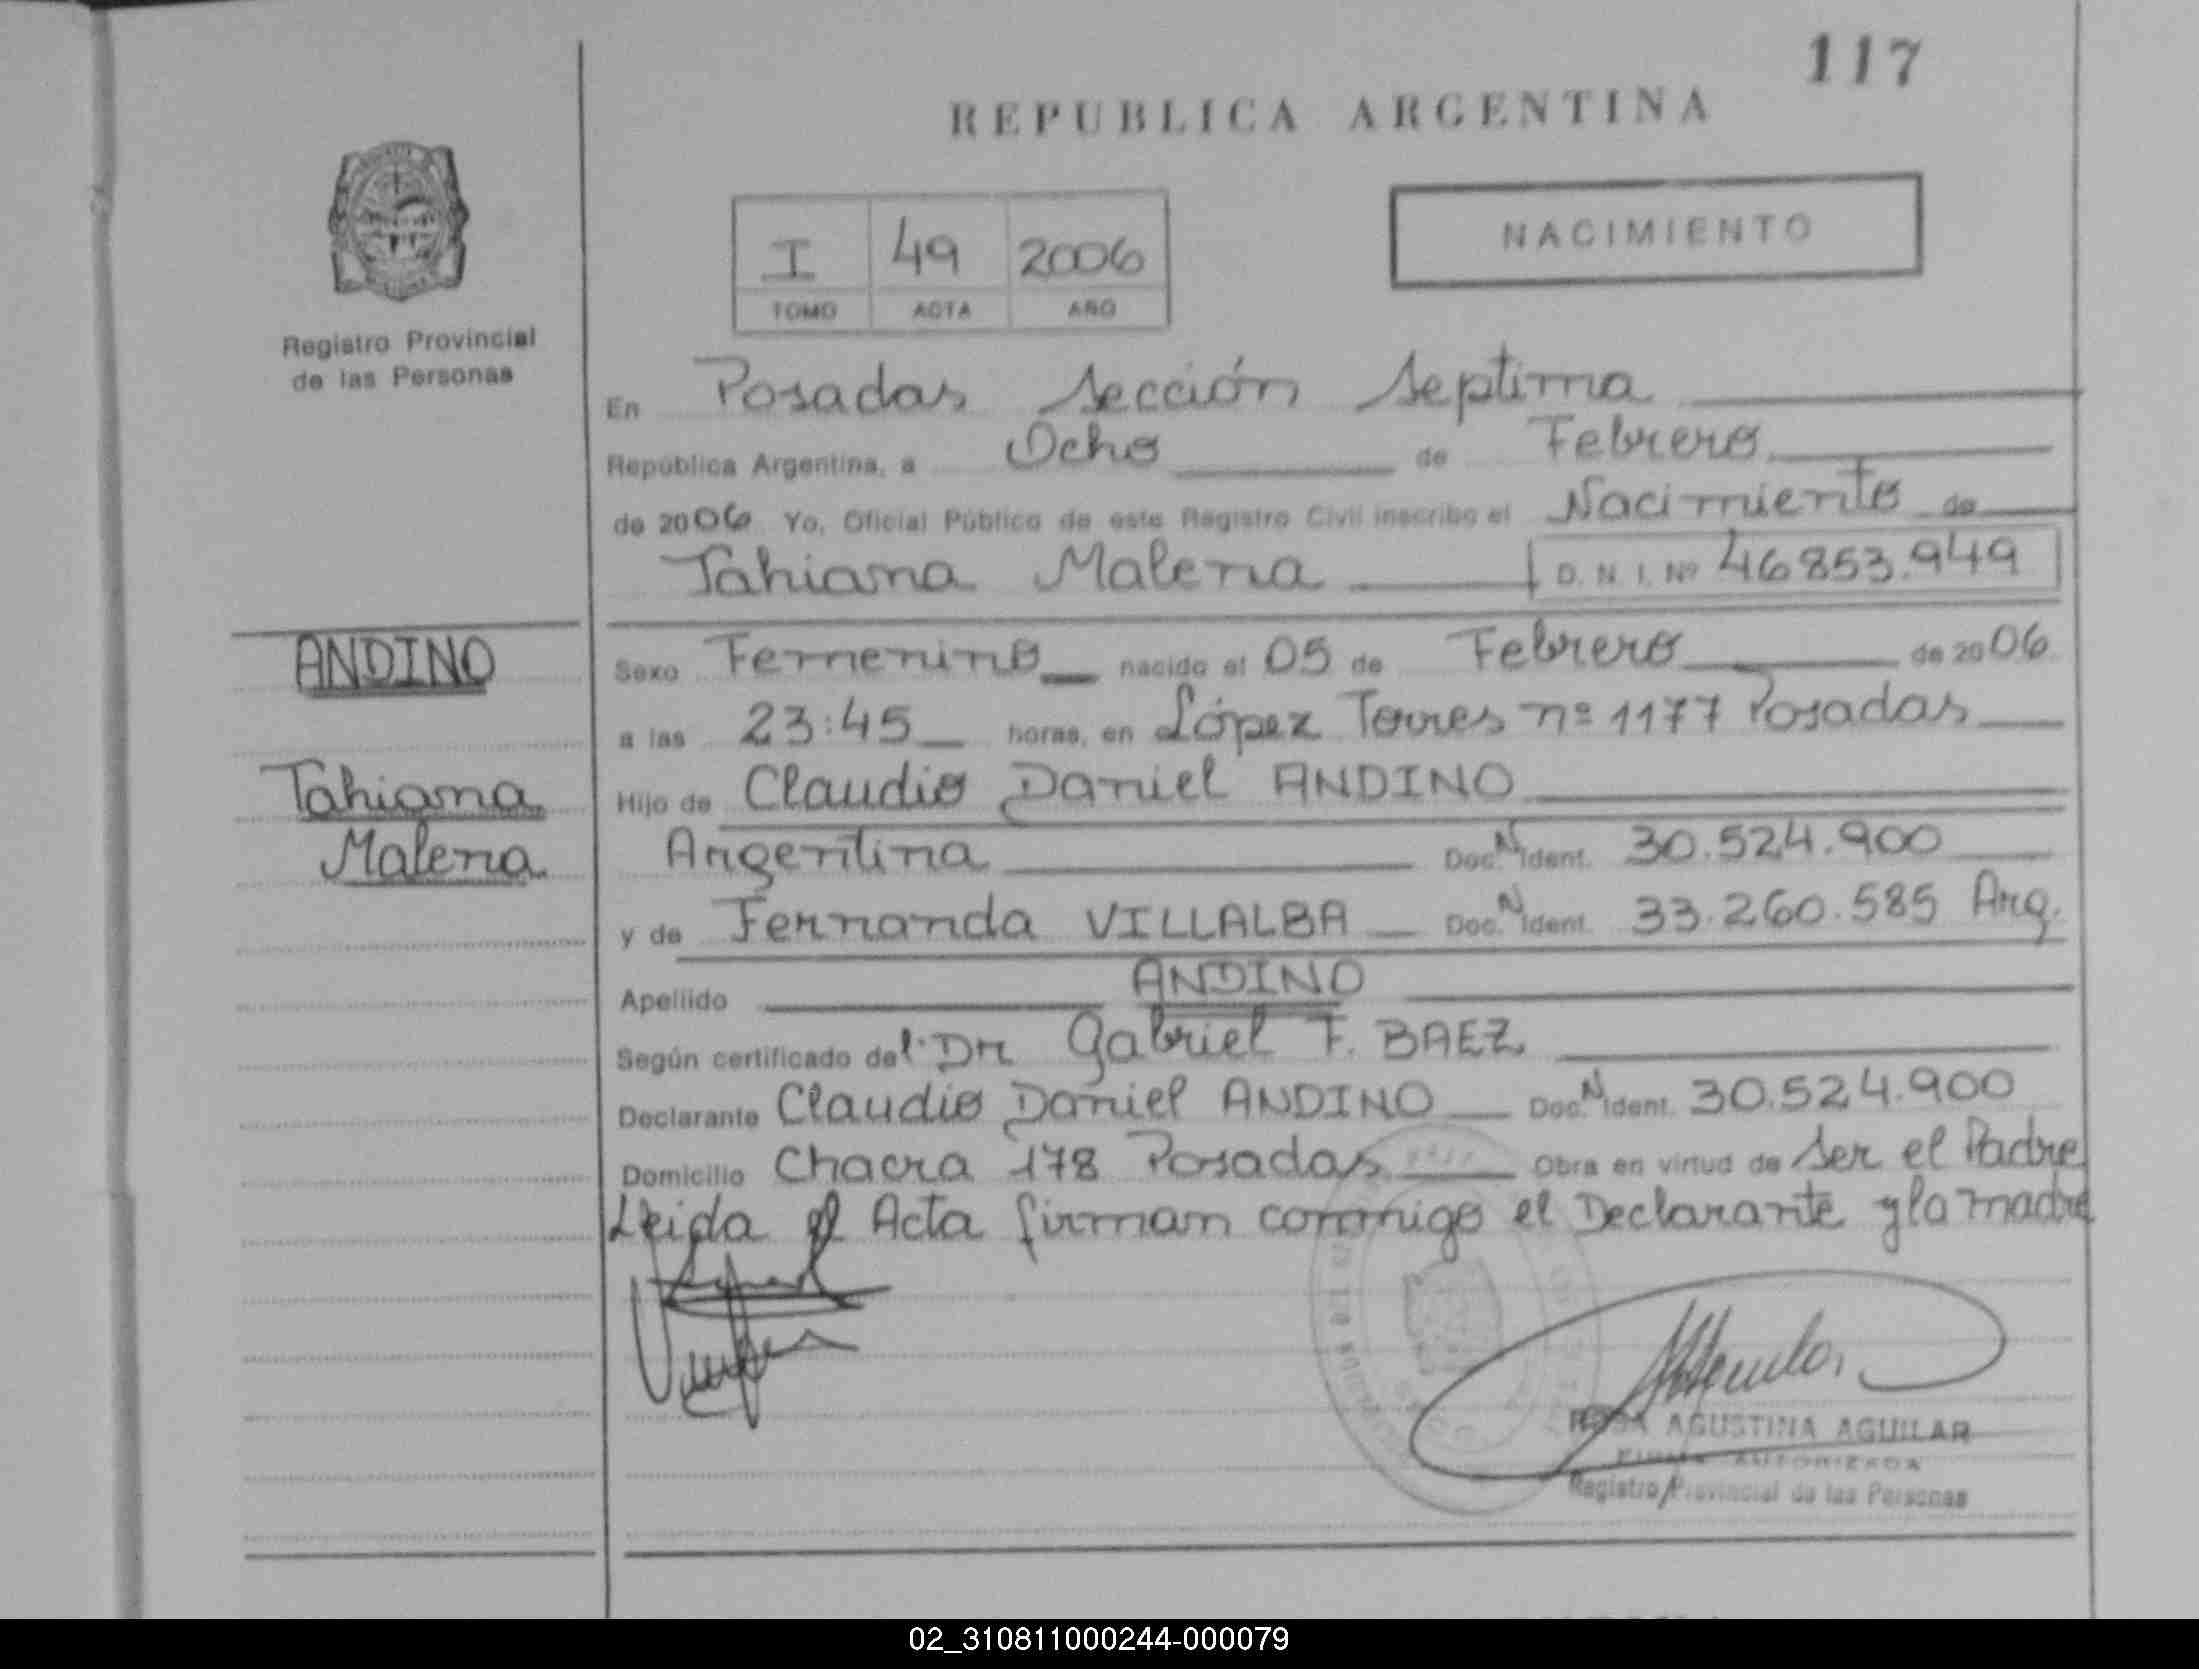 117
REPUBLICA ARGENTINA
NACIMIENTO
I 49 2006
TOMO ACTA AÑO
Registro Provincial
de las Personas
En Posadas Sección Septima
República Argentina, a Ocho de Febrero
de 2006 Yo, Oficial Público de este Registro Civil inscribo el Nacimiento de
Tahiana Malena D. N. I. Nº 46853.949
ANDINO
Tahiana
Malena
Sexo Femenino nacido el 05 de Febrero de 2006
a las 23:45 horas, en López Torres nº 1177 Posadas
Hijo de Claudio Daniel ANDINO
Argentina Doc. N Ident. 30.524.900
y de Fernanda VILLALBA Doc. N Ident. 33.260.585 Arg.
Apellido ANDINO
Según certificado del Dr Gabriel F. BAEZ
Declarante Claudio Daniel ANDINO Doc. N Ident. 30.524.900
Domicilio Chacra 178 Posadas Obra en virtud de Ser el Padre
Leida el Acta firman conmigo el Declarante y la madre
ROSA AGUSTINA AGUILAR
FIRMA AUTORIZADA
Registro Provincial de las Personas
02_310811000244-000079